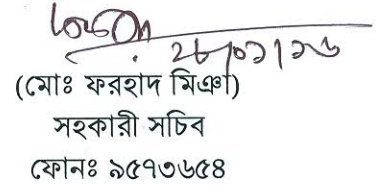 ২৮/০১/১৬
(মোঃ ফরহাদ মিঞা)
সহকারী সচিব
ফোনঃ ৯৫৭৩৬৫৪